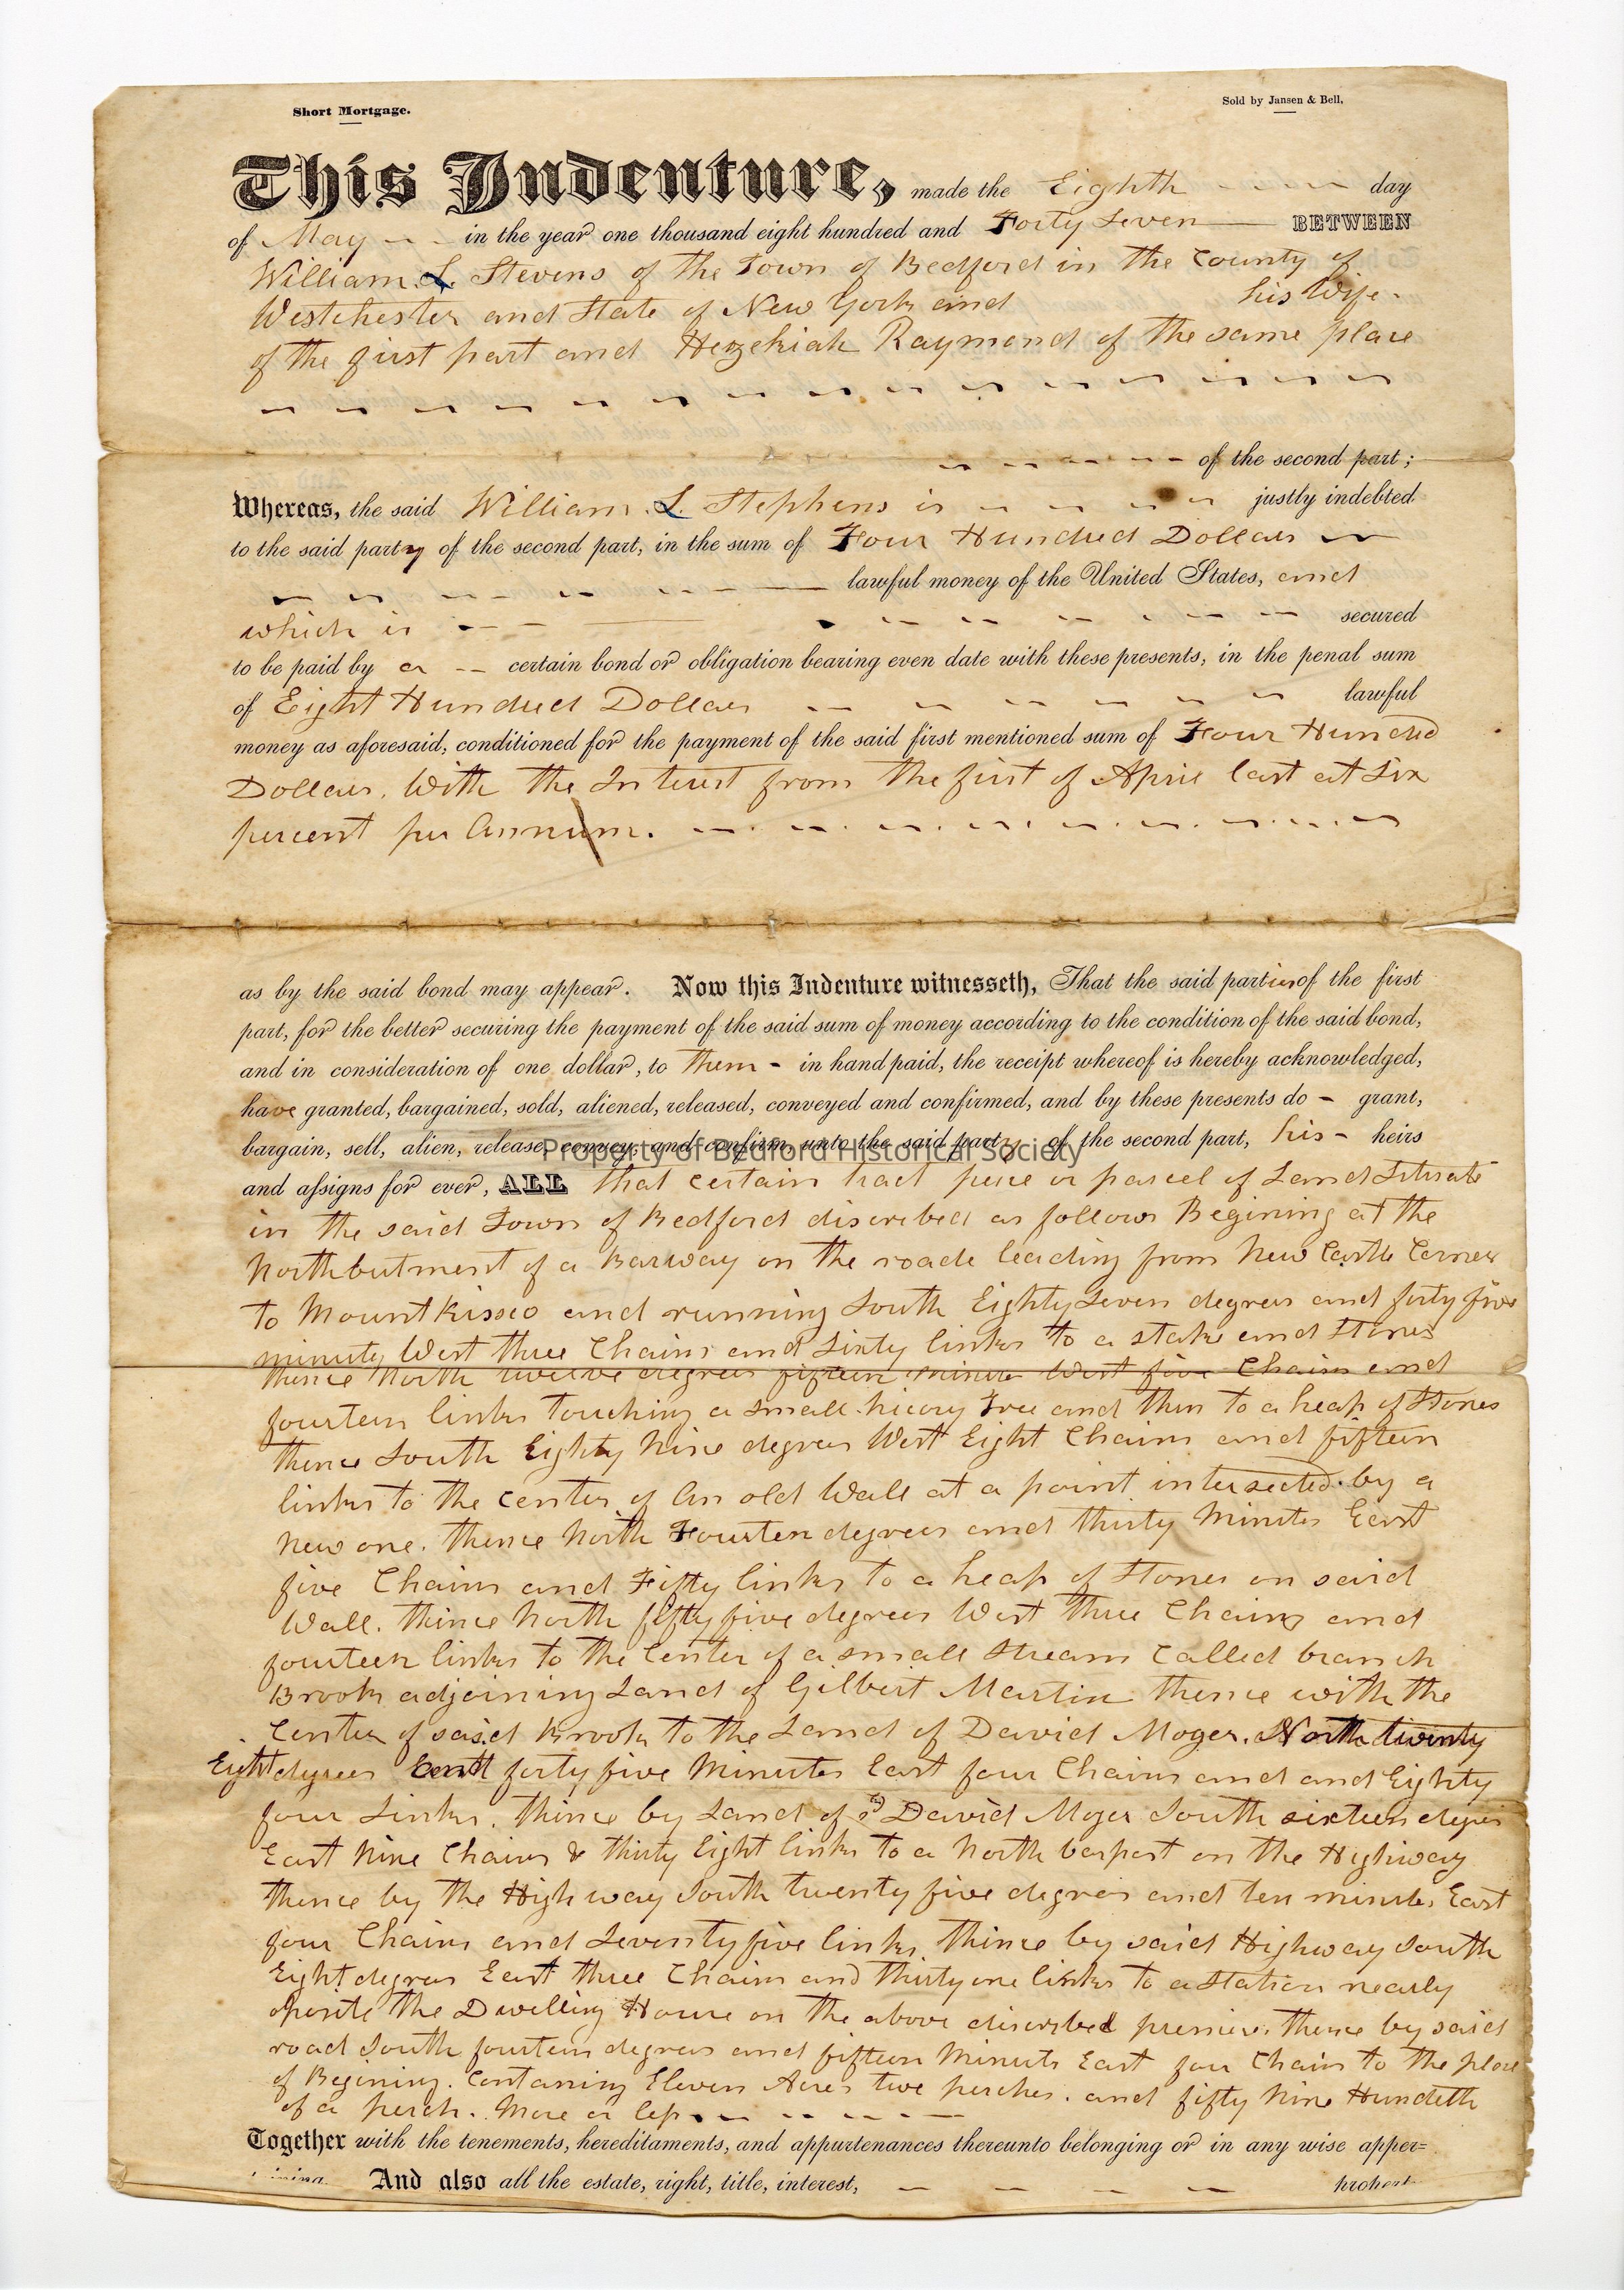 Short Mortgage.
Sold by Jansen & Bell.
This Indenture, made the Eighth day
of May in the year one thousand eight hundred and Forty Seven BETWEEN
William L. Stevens of the Town of Bedford in the County of
Westchester and State of New York and his Wife.
of the first part and Hezekiah Raymond of the same place
of the second part;
Whereas, the said William. L. Stephens is justly indebted
to the said party of the second part, in the sum of Four Hundred Dollars
lawful money of the United States, and
which is secured
to be paid by a certain bond or obligation bearing even date with these presents, in the penal sum
of Eight Hundred Dollars lawful
money as aforesaid, conditioned for the payment of the said first mentioned sum of Four Hundred
Dollars. With the Interest from the first of April last at Six
percent per Annum.
as by the said bond may appear. Now this Indenture witnesseth, That the said parties of the first
part, for the better securing the payment of the said sum of money according to the condition of the said bond,
and in consideration of one dollar, to them - in hand paid, the receipt whereof is hereby acknowledged,
have granted, bargained, sold, aliened, released, conveyed and confirmed, and by these presents do - grant,
bargain, sell, alien, release, convey, and confirm unto the said party of the second part, his - heirs
Property of Bedford Historical Society
and assigns for ever, ALL that certain tract peice or parcel of Land Situate
in the said Town of Bedford discribed as follows Begining at the
North butment of a Barway on the roade leading from New Castle Corner
to Mount Kissco and running South Eighty Seven degrees and forty five
minuts West three Chains and Sixty links to a stake and Stones
thence North twelve degrees fifteen minuts West five Chains and
fourteen links touching a small hicory Tree and then to a heap of Stones
thence South Eighty Nine degrees West Eight Chains and fifteen
links to the center of An old Wall at a point intersected by a
New one. thence North Fourteen degrees and thirty Minutes East
five Chains and Fifty links to a heap of Stones on said
Wall. thence North fifty five degrees West three Chains and
fourteen links to the Center of a small Stream Called branch
Brook adjoining Land of Gilbert Martin thence with the
Center of said Brook to the Land of David Moger. North twenty
Eight degrees forty five Minutes East four Chains and and Eighty
four Links. thence by Land of sd David Moger South sixteen degres
East Nine Chains & thirty Eight links to a North barpost on the Highway
thence by the High way South twenty five degrees and ten minutes East
four Chains and Seventy five links. thence by said Highway South
Eight degrees East three Chains and thirty one links to a Station nearly
oposite the Dwelling House on the above discribed premises. thence by said
road South fourteen degrees and fifteen Minuts East four Chains to the place
of Begining. Containing Eleven Acres two perches. and fifty Nine Hundeth
of a perch. More or less
Together with the tenements, hereditaments, and appurtenances thereunto belonging or in any wise apper=
And also all the estate, right, title, interest,